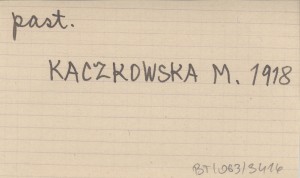 past.
KACZKOWSKA M. 1918
BT/063/S416